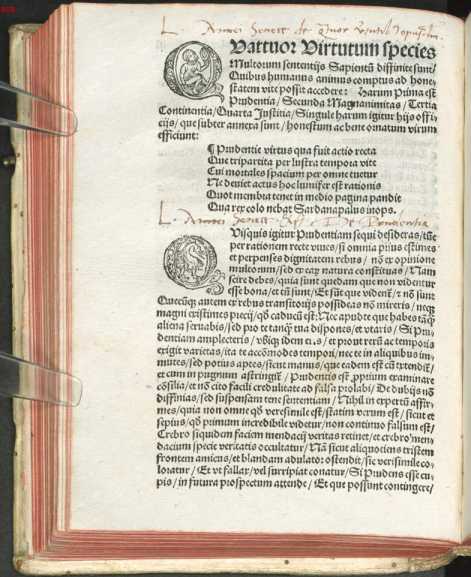 L. Annei Senece de
Quattuor Virtutum species
Multorum sententijs Sapientũ diffinite sunt/
Quibus humanus animus comptus ad hone/
statem vite possit accedere: Harum Prima est
Prudentia/ Secunda Magnanimitas/ Tertia
Continentia/ Quarta Justitia/ Singule harum igitur hijs offi
cijs/ que subter annexa sunt/ honestum ac bene ornatum virum
efficiunt:
¶ Prudentie virtus qua fuit actio recta
Que tripartita per lustra tempora vite
Cui mortales spacium per omne tuetur
Ne deviet actus hoc lumiser est rationis
Quot membra tenet in medio pagina pandit
Qua rex colo nebat Sardanapalus inops.
L. Annei Senece De Prudentia
Quisquis igitur Prudentiam sequi desideras/ tũc
per rationem recte vives/ si omnia prius estimes
et perpenses dignitatem rebus/ nõ ex opinione
multorum/ sed ex eaꝝ natura constituas/ Nam
scire debes/ quia sunt quedam que non videntur
esse bona/ et tñ sunt/ Et sũt que vident᷑/ et nõ sunt
Quecũqꝫ autem ex rebus transitorijs possidas nõ mireris/ neqꝫ
magni existimes precij/ qđ caducũ est: Nec apud te que habes tãqꝫ
aliena servabis/ sed pro te tanqꝫ tua dispones/ et utaris/ Si Pru/
dentiam amplecteris/ vbiqꝫ idem eris/ et prout rerũ ac temporis
exigit varietas/ ita te accõmodes tempori/ nec te in aliquibus in/
mutes/ sed potius aptes/ sicut manus/ que eadem est cũ extendit᷑/
et cum in pugnum astringit᷑/ Prudentis est ꝓprium examinare
cõsilia/ et nõ cito facili credulitate ad falsa prolabi/ De dubijs nõ
diffinias/ sed suspensam tene sententiam/ Nihil in expertũ affir/
mes/ quia non omne qđ verisimile est/ statim verum est/ sicut et
sepius/ qđ primum incredibile videtur/ non continuo falsum est/
Crebro siquidem faciem mendacij veritas retinet/ et crebro men/
dacium specie veritatis occultatur/ Nã sicut aliquotiens tristem
frontem amicus/ et blandam adulator ostendit/ sic verisimile co/
loratur/ Et ut fallax/ vel surripiat conatur/ Si Prudens esse cu/
pis/ in futura prospectum attende/ Et que possunt contingere/